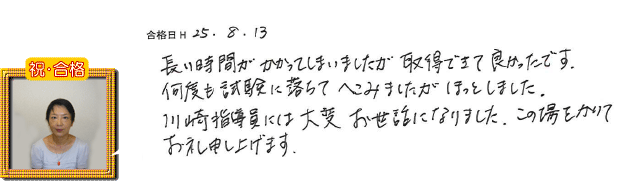 合格日 H 25. 8. 13
祝・合格
長い時間がかかってしまいましたが 取得できて良かったです.
何度も試験に落ちて へこみましたが ほっとしました.
川崎指導員には大変 お世話になりました. この場をかりて
お礼申し上げます.